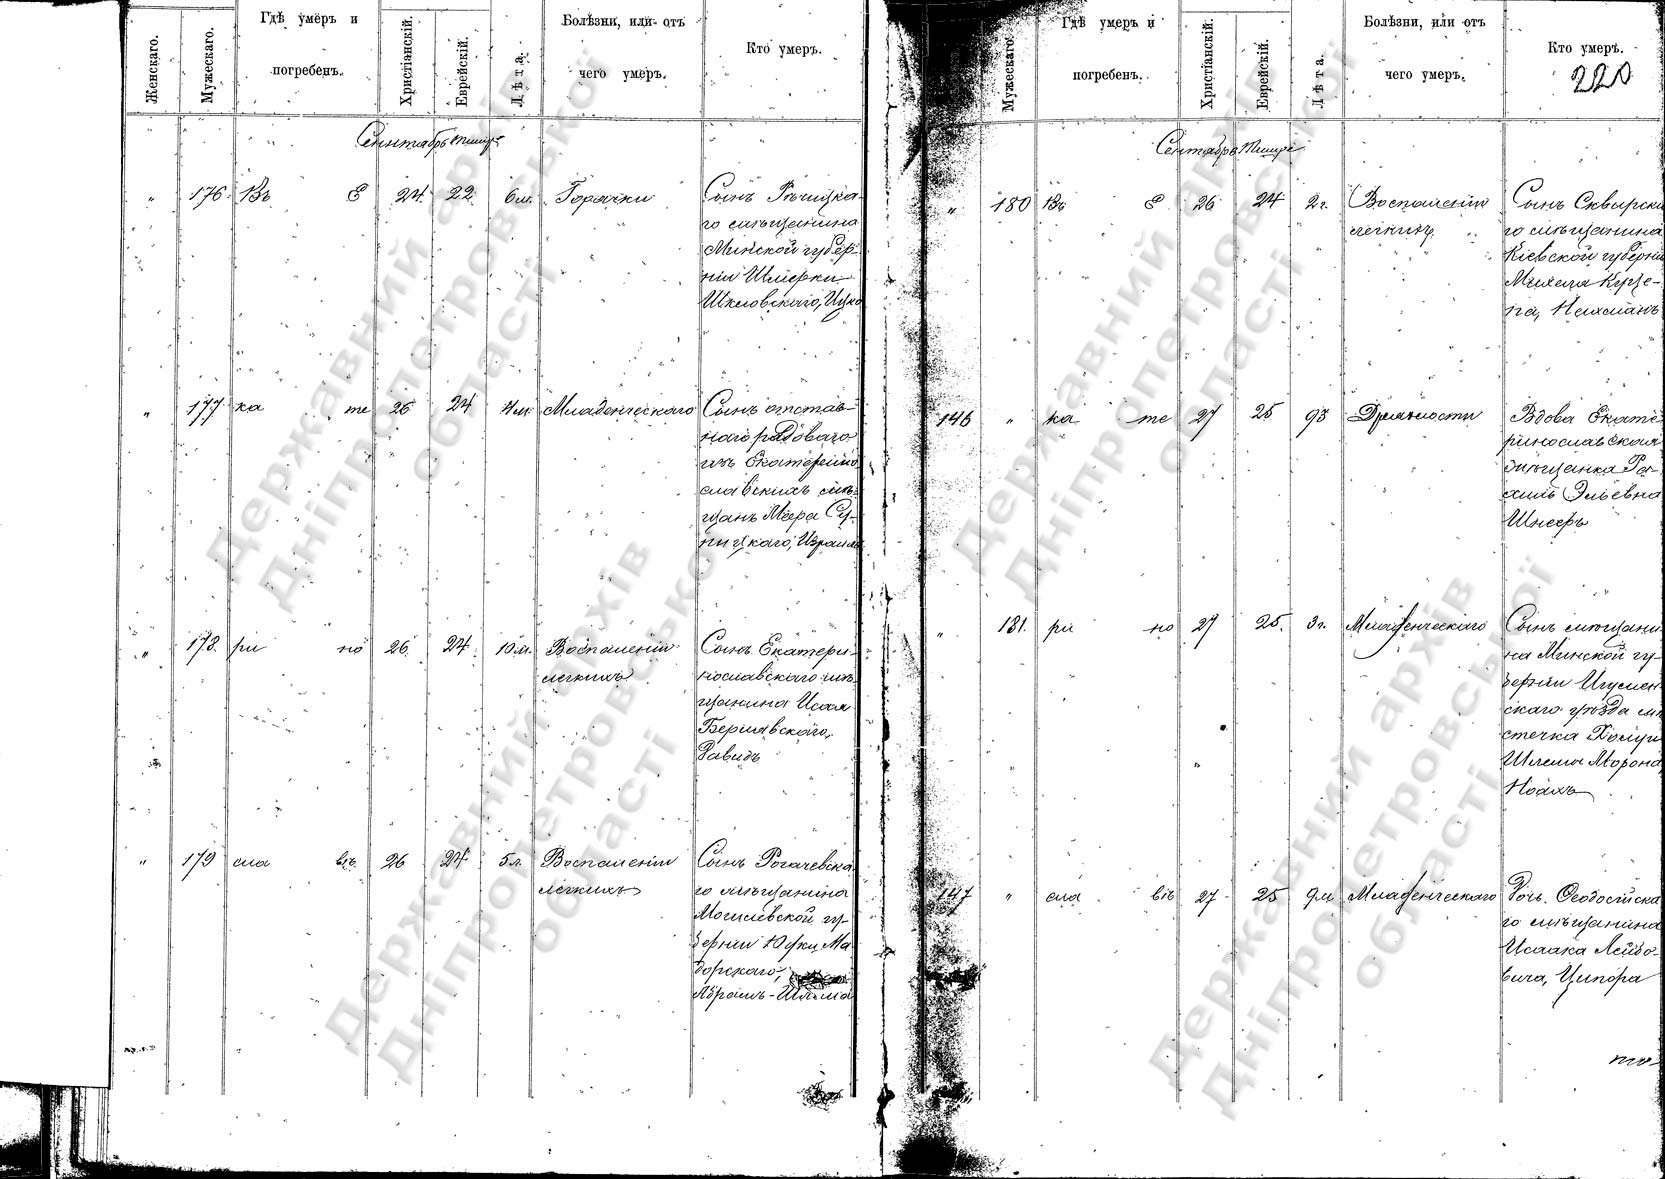 Женскаго.
Мужескаго.
Гдѣ умеръ и
погребенъ.
Христіанскій.
Еврейскій.
Лѣта.
Болѣзни, или отъ
чего умеръ.
Кто умеръ.
Сентябрь Тишре
„ 176. Въ Е 24 22 6 м. Горячки
Сынъ Рѣчицка-
го мѣщанина
Минской губер-
ніи Шмерки
Шкловскаго, Ицко
„ 177 ка те 26 24 4 м Младенческаго
Сынъ отстав-
наго рядоваго
изъ Екатерино
славскихъ мѣ-
щанъ Меера Су-
ницкаго, Израиль
„ 178. ри но 26 24 10 м. Воспаленіи
легкихъ
Сынъ Екатери-
нославскаго мѣ-
щанина Исаи
Бершавскаго,
Давидъ
„ 179 сла вѣ 26 24 5 л. Воспаленіи
легкихъ
Сынъ Рогачевска
го мѣщанина
Могилевской гу-
берніи Юдки Ма
дорскаго,
Абрамъ-Шлема
Мужескаго
Гдѣ умеръ и
погребенъ.
Христіанскій.
Еврейскій.
Лѣта.
Болѣзни, или отъ
чего умеръ.
Кто умеръ.
220
Сентябрь Тишре
„ 180 Въ Е 26 24 2 г. Воспаленіи
легкихъ
Сынъ Сквирска
го мѣщанина
Кіевской губерніи
Михеля Куце-
на, Нахманъ
146 „ ка те 27 25 93 Дряхлости
Вдова Екате-
ринославская
мѣщанка Ра-
хиль Эльевна
Шнееръ
„ 181. ри но 27 25. 3 г. Младенческаго
Сынъ мѣщани
на Минской гу-
берніи Игумен
скаго уѣзда мѣ
стечка
Шлемы Морона,
Ноахъ
147 „ сла вѣ 27 25 9 м Младенческаго
Дочь Ѳеодосійска
го мѣщанина
Исаака Лейбо-
вича, Ципора
Державний архів
Дніпропетровської
області
Державний архів
Дніпропетровської
області
Державний архів
Дніпропетровської
області
Державний архів
Дніпропетровської
області